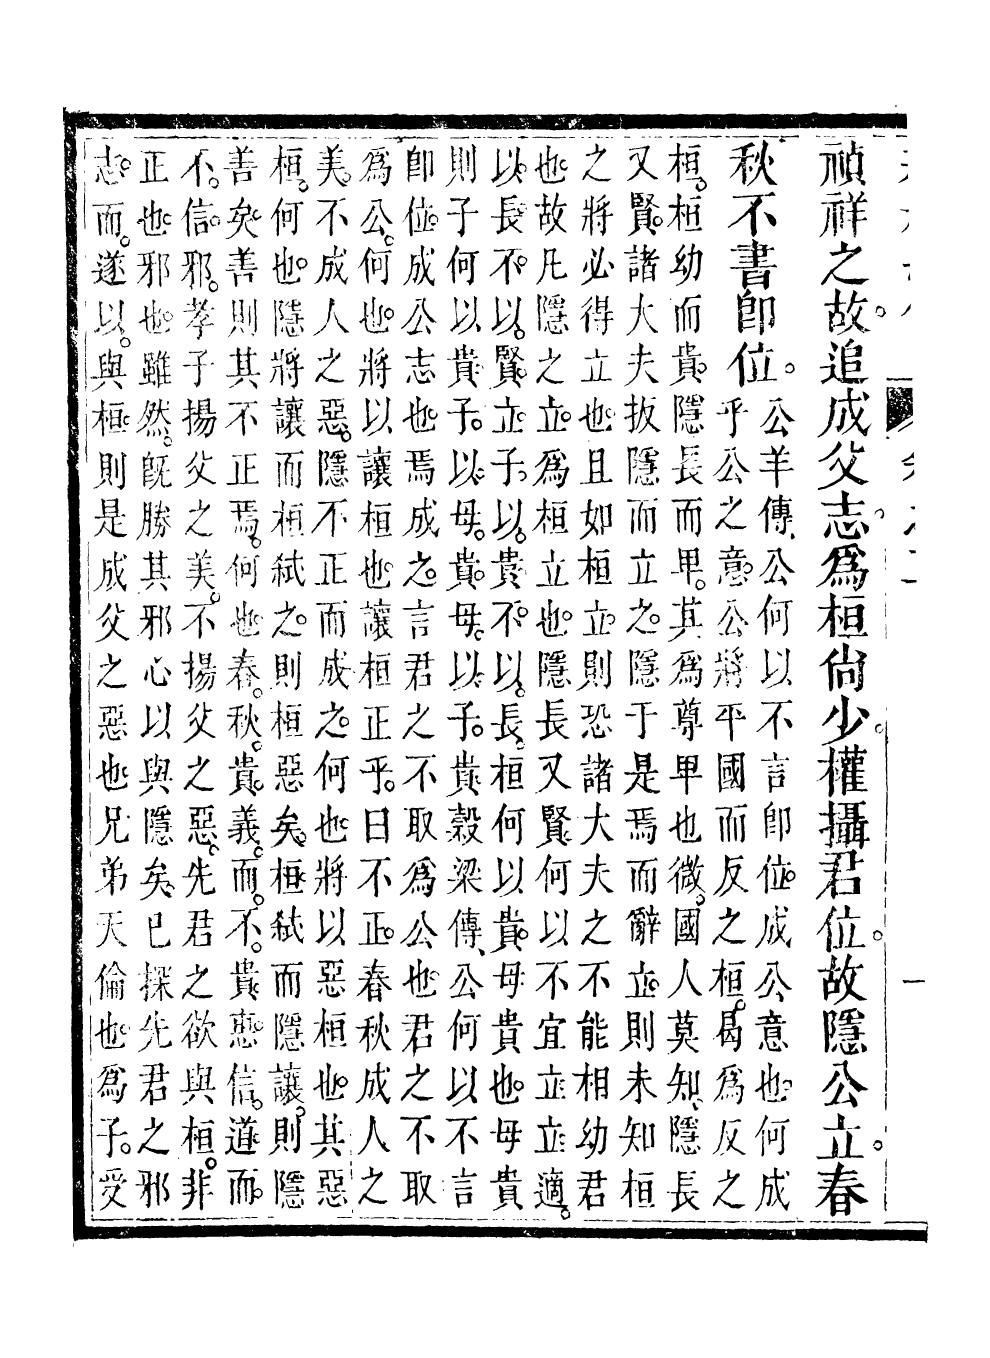 禎祥之故。追成父志。爲桓尙少。權攝君位。故隱公立。春
秋不書卽位。
公羊傳、公何以不言卽位。成公意也。何成
乎公之意。公將平國而反之桓。曷爲反之
桓。桓幼而貴。隱長而卑。其爲尊卑也微。國人莫知、隱長
又賢。諸大夫扳隱而立之。隱于是焉而辭立。則未知桓
之將必得立也。且如桓立。則恐諸大夫之不能相幼君
也。故凡隱之立。爲桓立也。隱長又賢。何以不宜立。立適。
以。長。不。以。賢。立。子。以。貴。不。以。長。桓何以貴。母貴也。母貴
則子何以貴。子。以。母。貴。母。以。子。貴。穀梁傳、公何以不言
卽位。成公志也。焉成之。言君之不取爲公也。君之不取
爲公。何也。將以讓桓也。讓桓正乎。曰不正。春秋成人之
美。不成人之惡。隱不正而成之。何也。將以惡桓也。其惡
桓。何也。隱將讓而桓弑之。則桓惡矣。桓弑而隱讓。則隱
善矣。善則其不正焉。何也。春。秋。貴。義。而。不。貴。惠。信。道。而。
不。信。邪。孝子揚父之美。不揚父之惡。先君之欲與桓。非
正也。邪也。雖然。旣勝其邪心以與隱矣。已探先君之邪
志。而。遂以。與桓。則是成父之惡也。兄弟天倫也。爲子。受